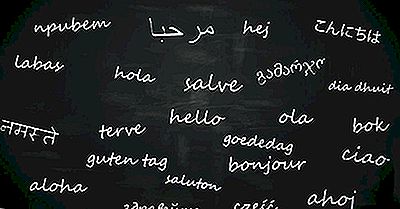 привет
مرحبا
hej
こんにちは
labas
hola
salve
გამარჯობა
dia dhuit
नमस्ते
terve
hello
ola
bok
goededag
guten tag
bonjour
ciao
aloha
saluton
cześć
ahoj